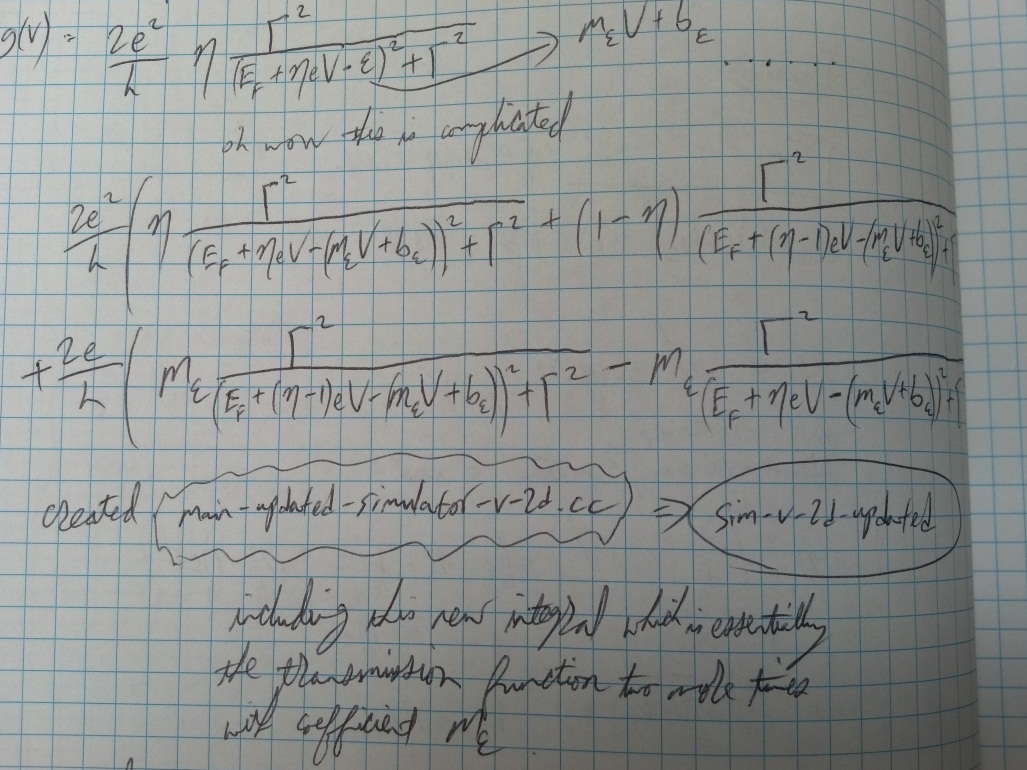 g(V) = 2e²/h η Γ²/((E_F + ηeV - ε)² + Γ²) → m_ε V + b_ε ......
oh wow this is complicated
2e²/h ( η Γ²/((E_F + ηeV - (m_ε V + b_ε))² + Γ²) + (1 - η) Γ²/((E_F + (η - 1)eV - (m_ε V + b_ε))² +
+ 2e/h ( m_ε Γ²/((E_F + (η - 1)eV - (m_ε V + b_ε))² + Γ²) - m_ε Γ²/((E_F + ηeV - (m_ε V + b_ε))² +
created main-updated-simulator-v-2d.cc ⇒ sim-v-2d-updated
including this new integral which is essentially
the transmission function two more times
with coefficient m_ε